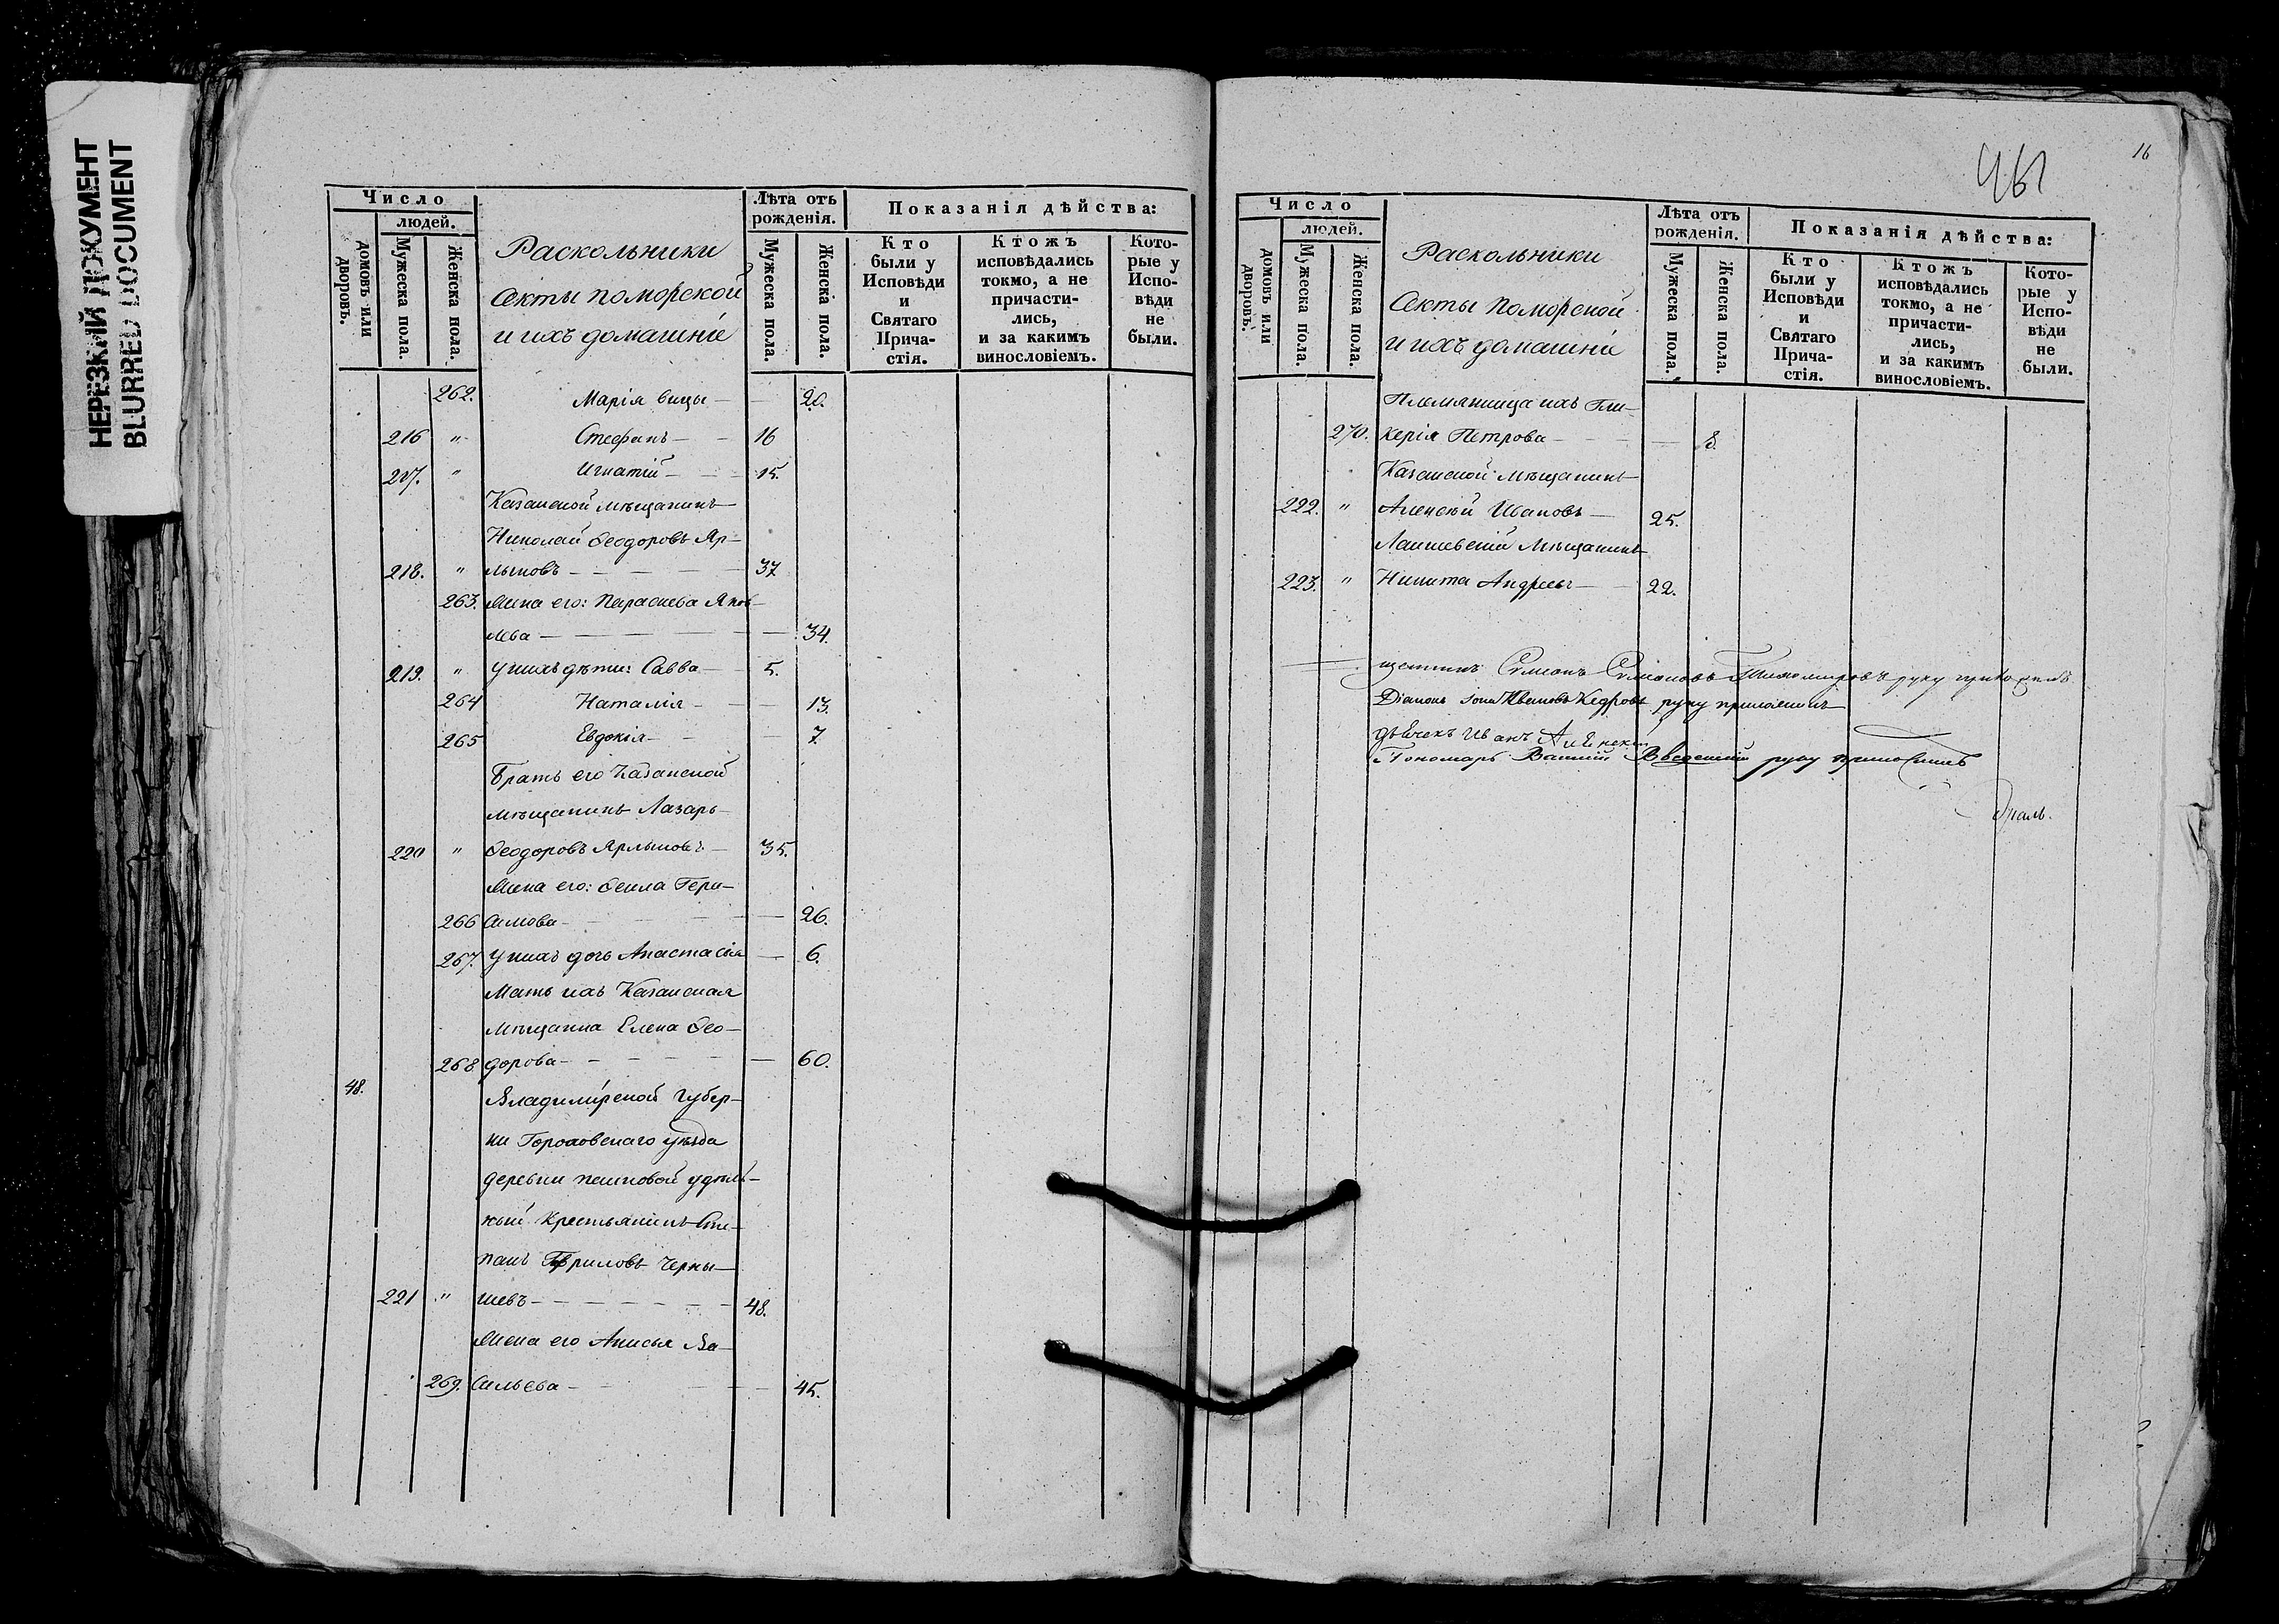 НЕРЕЗКИЙ ДОКУМЕНТ
BLURRED DOCUMENT
Число
людей.
домовъ или дворовъ.
Мужеска пола.
Женска пола.
Раскольники
секты поморской
и ихъ домашніе
Лѣта отъ рожденія.
Мужеска пола.
Женска пола.
Показанія дѣйства:
Кто были у Исповѣди и Святаго Прича-стія.
Ктожъ исповѣдались токмо, а не причасти-лись, и за какимъ винословіемъ.
Кото-рые у Испо-вѣди не были.
262. Марія — 20.
216 " Стефанъ — 16
217. " Игнатій — 15.
Казанской мѣщанинъ
Николай Ѳеодоровъ Яр-
218. " лыковъ — 37
263. Жена его: Параскева Яков-
лева — 34.
219. " У нихъ дѣти: Савва — 5.
264 Наталія — 13.
265 Евдокія — 7.
Братъ его Казанской
мѣщанинъ Лазарь
220 " Ѳеодоровъ Ярлыковъ — 35.
Жена его: Ѳекла Гера-
266 симова — 26.
267. У нихъ дочь Анастасія — 6.
Мать ихъ Казанская
мѣщанка Елена Ѳео-
268 дорова — 60.
48.
Владимірской губер-
ни Гороховскаго уѣзда
деревни удѣль-
ный Крестьянинъ Сте-
панъ Черны-
221 " шевъ — 48.
Жена его Анисья Ва-
269. сильева — 45.
16
Число
людей.
домовъ или дворовъ.
Мужеска пола.
Женска пола.
Раскольники
секты поморской
и ихъ домашніе
Лѣта отъ рожденія.
Мужеска пола.
Женска пола.
Показанія дѣйства:
Кто были у Исповѣди и Святаго Прича-стія.
Ктожъ исповѣдались токмо, а не причасти-лись, и за какимъ винословіемъ.
Кото-рые у Испо-вѣди не были.
Племянница ихъ Гли-
270. керія Петрова — 8.
Казанской мѣщанинъ
222. " Алексѣй Ивановъ — 25.
Лаишевскій мѣщанинъ
223. " Никита Андреевъ — 22.
Симеонъ Симеоновъ Тихомировъ руку приложилъ
Діаконъ Іона Ивановъ Кедровъ руку приложилъ
Дьячекъ Иванъ
Пономарь Введенскій руку приложилъ